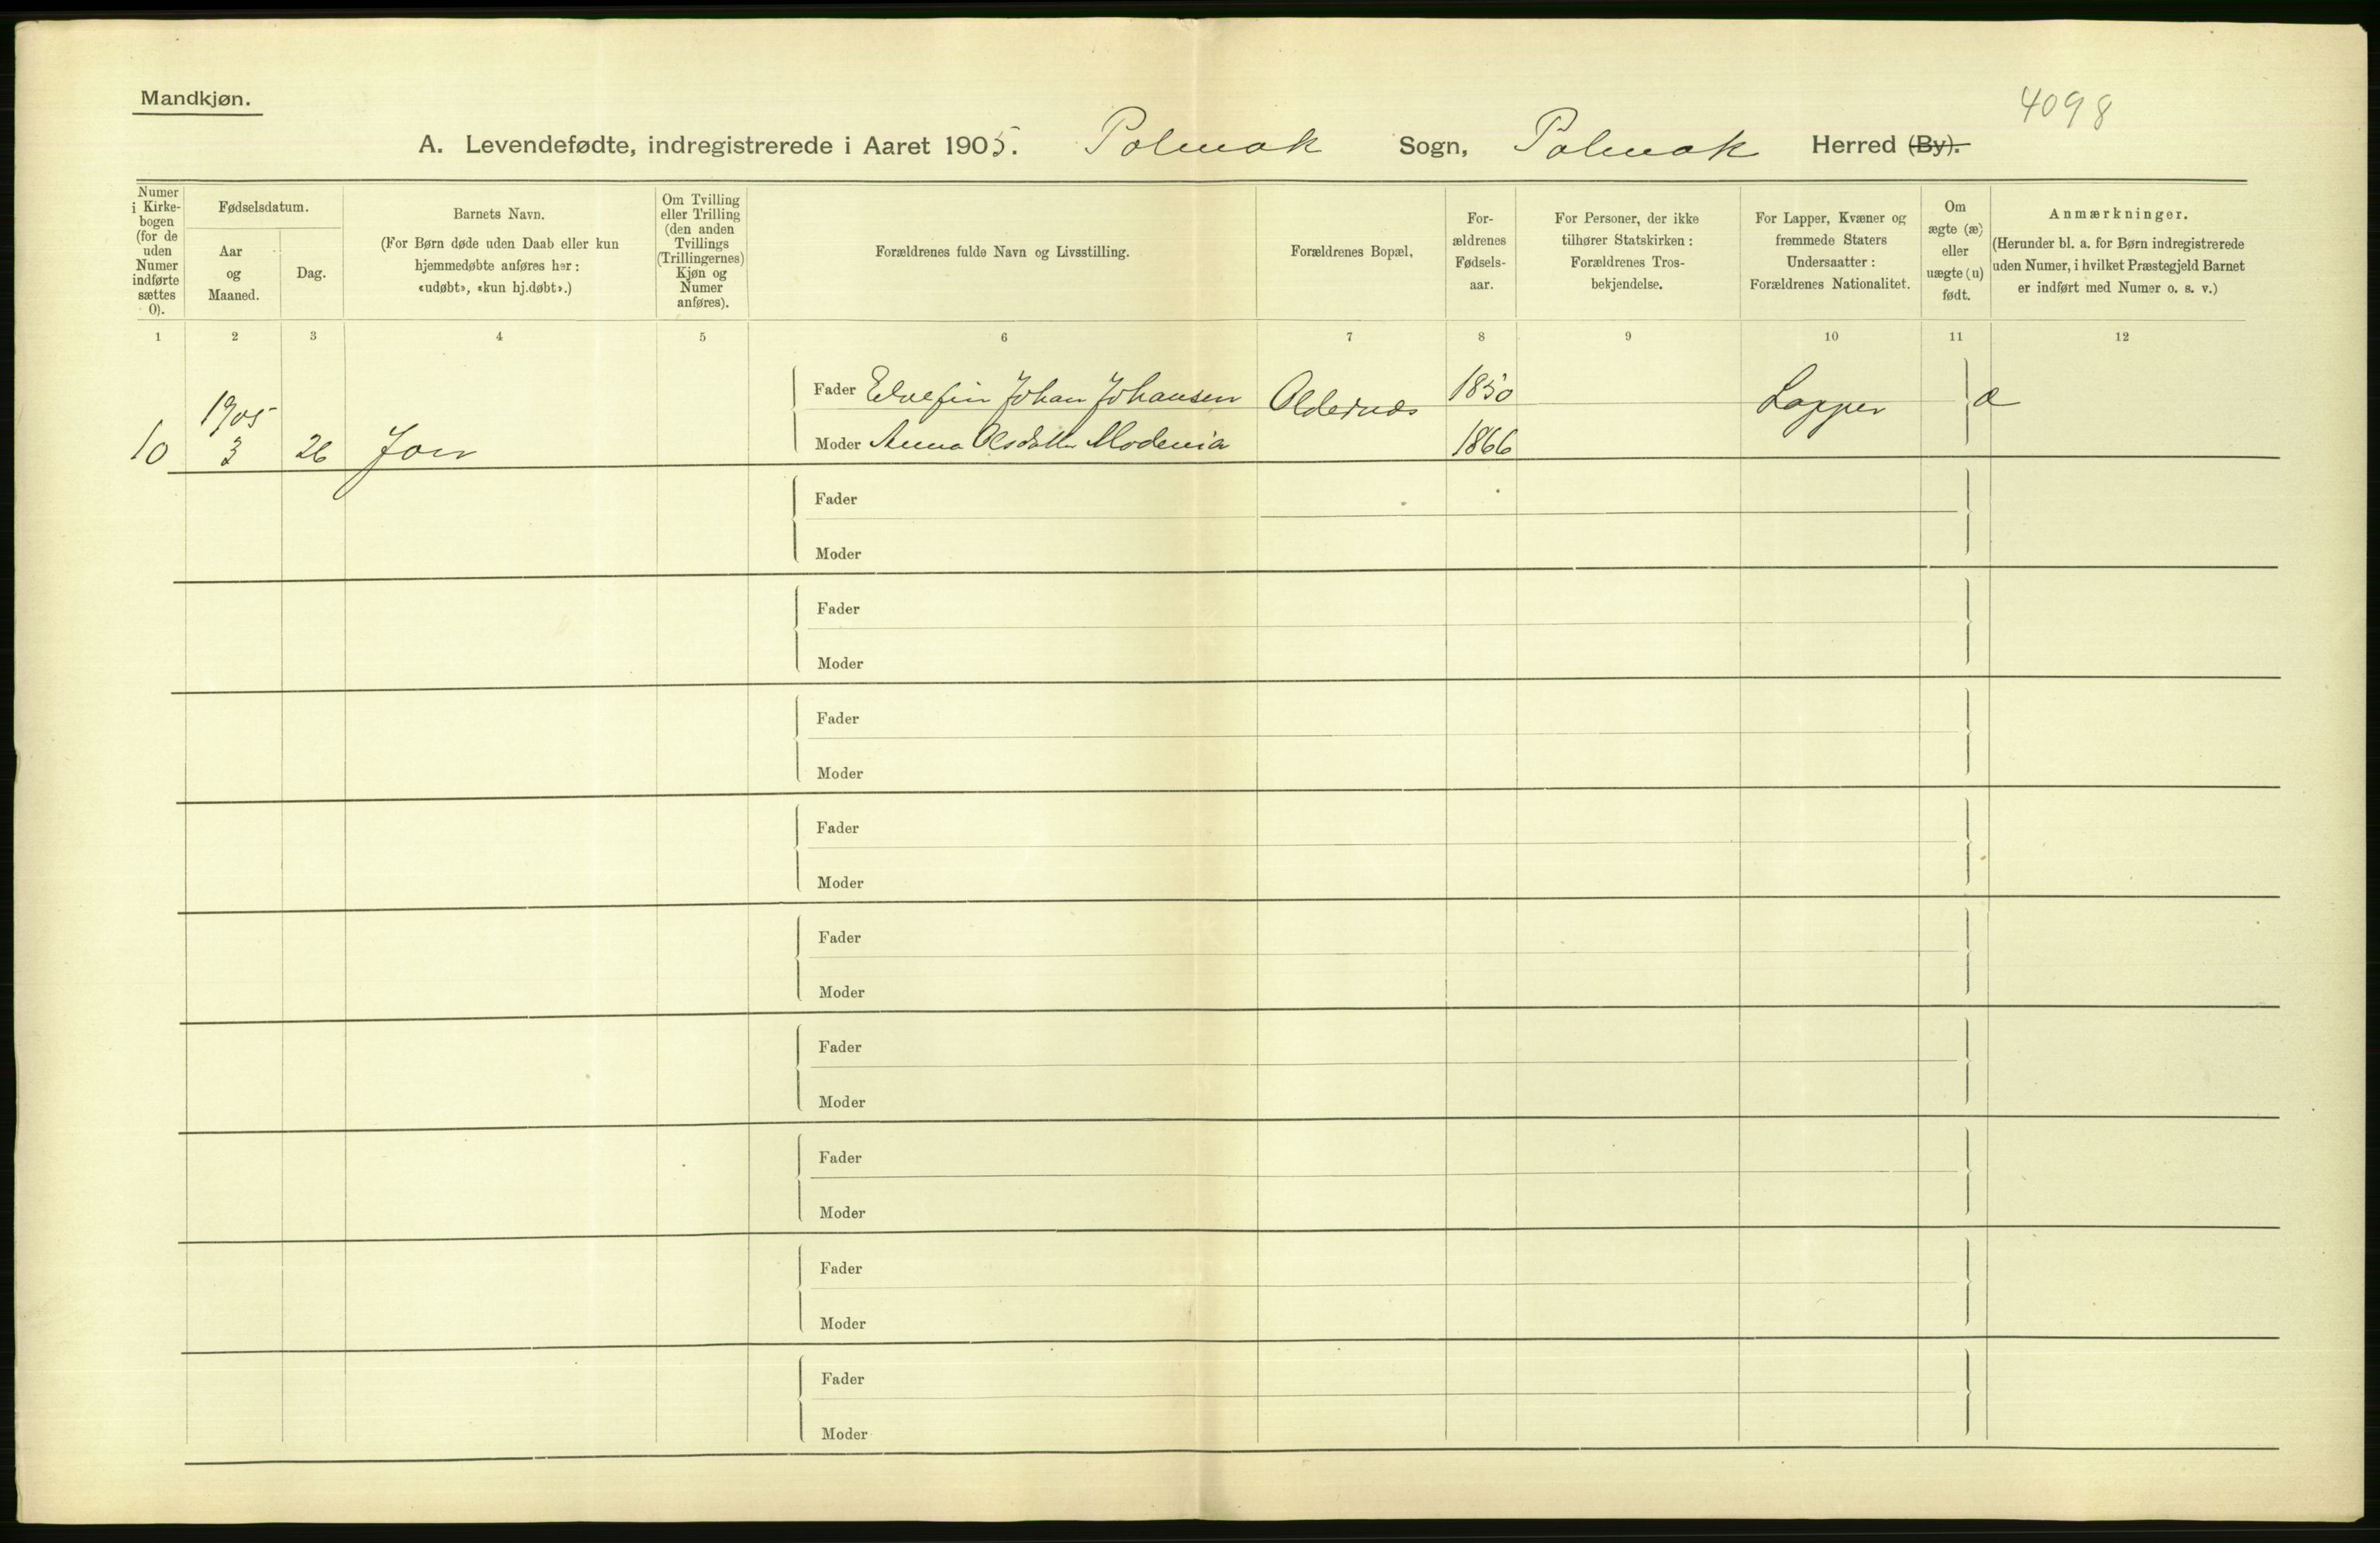 Mandkjøn.
4098
A. Levendefødte, indregistrerede i Aaret 1905. Polmak Sogn, Polmak Herred (By).
Numer i Kirke-bogen (for de uden Numer indførte sættes 0).
Fødselsdatum.
Aar og Maaned.
Dag.
Barnets Navn.
(For Børn døde uden Daab eller kun
hjemmedøbte anføres her:
«udøbt», «kun hj.døbt».)
Om Tvilling
eller Trilling
(den anden
Tvillings
(Trillingernes)
Kjøn og
Numer
anføres).
Forældrenes fulde Navn og Livsstilling.
Forældrenes Bopæl,
For-
ældrenes
Fødsels-
aar.
For Personer, der ikke
tilhører Statskirken:
Forældrenes Tros-
bekjendelse.
For Lapper, Kvæner og
fremmede Staters
Undersaatter:
Forældrenes Nationalitet.
Om
ægte (æ)
eller
uægte (u)
født.
Anmærkninger.
(Herunder bl. a. for Børn indregistrerede
uden Numer, i hvilket Præstegjeld Barnet
er indført med Numer o. s. v.)
1 2 3 4 5 6 7 8 9 10 11 12
Fader Elvefin Johan Johansen Oldernæs 1850 Lapper æ
1905
10 3 26 Jon Moder Anna Olsdatter 1866
Fader
Moder
Fader
Moder
Fader
Moder
Fader
Moder
Fader
Moder
Fader
Moder
Fader
Moder
Fader
Moder
Fader
Moder